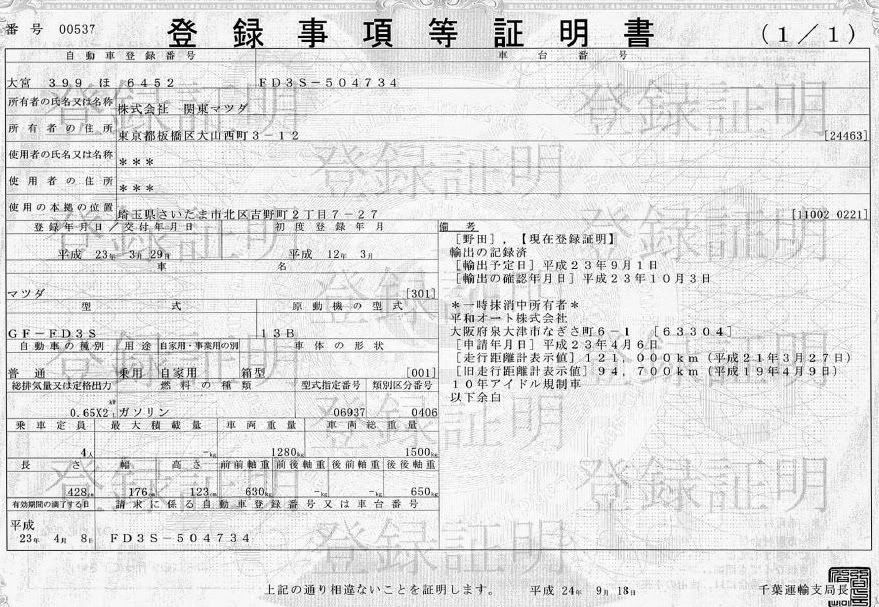 番号 00537 登録事項等証明書 (1/1)
自動車登録番号 車台番号
大宮 399 ほ 6452 FD3S-504734
所有者の氏名又は名称 株式会社 関東マツダ
所有者の住所 東京都板橋区大山西町3-12 [24463]
使用者の氏名又は名称 ***
使用者の住所 ***
使用の本拠の位置 埼玉県さいたま市北区吉野町2丁目7-27 [11002 0221]
登録年月日/交付年月日 初度登録年月 備考
平成 23年 3月 29日 平成 12年 3月
車名
マツダ [301]
型式 原動機の型式
GF-FD3S 13B
自動車の種別 用途 自家用・事業用の別 車体の形状
普通 乗用 自家用 箱型 [001]
総排気量又は定格出力 燃料の種類 型式指定番号 類別区分番号
kW
0.65X2 L ガソリン 06937 0406
乗車定員 最大積載量 車両重量 車両総重量
4人 -kg 1280kg 1500kg
長さ 幅 高さ 前前軸重 前後軸重 後前軸重 後後軸重
428cm 176cm 123cm 630kg -kg -kg 650kg
有効期間の満了する日 請求に係る自動車登録番号又は車台番号
平成
23年 4月 8日 FD3S-504734
[野田],【現在登録証明】
輸出の記録済
[輸出予定日]平成23年9月1日
[輸出の確認年月日]平成23年10月3日
*一時抹消中所有者*
平和オート株式会社
大阪府泉大津市なぎさ町6-1 [63304]
[申請年月日]平成23年4月6日
[走行距離計表示値]121,000km(平成21年3月27日)
[旧走行距離計表示値]94,700km(平成19年4月9日)
10年アイドル規制車
以下余白
上記の通り相違ないことを証明します。 平成 24年 9月 18日 千葉運輸支局長
登録証明 登録証明
登録証明
登録証明 登録証明
登録証明
登録証明 登録証明
登録証明
登録証明 登録証明
登録証明